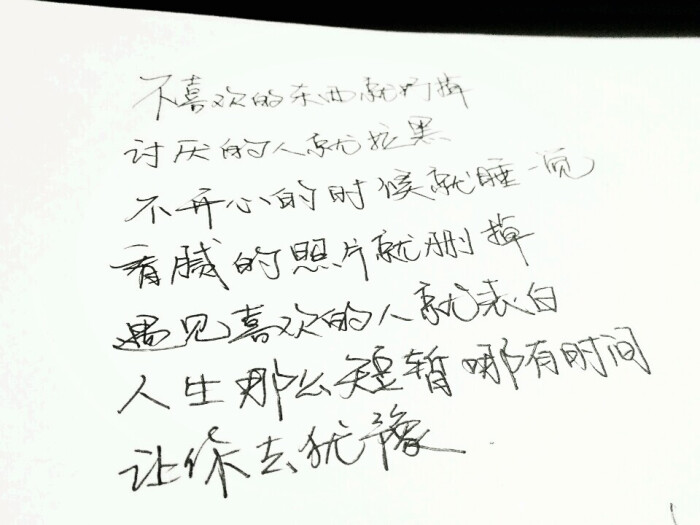 不喜欢的东西就扔掉
讨厌的人就拉黑
不开心的时候就睡一觉
看腻的照片就删掉
遇见喜欢的人就表白
人生那么短暂哪有时间
让你去犹豫